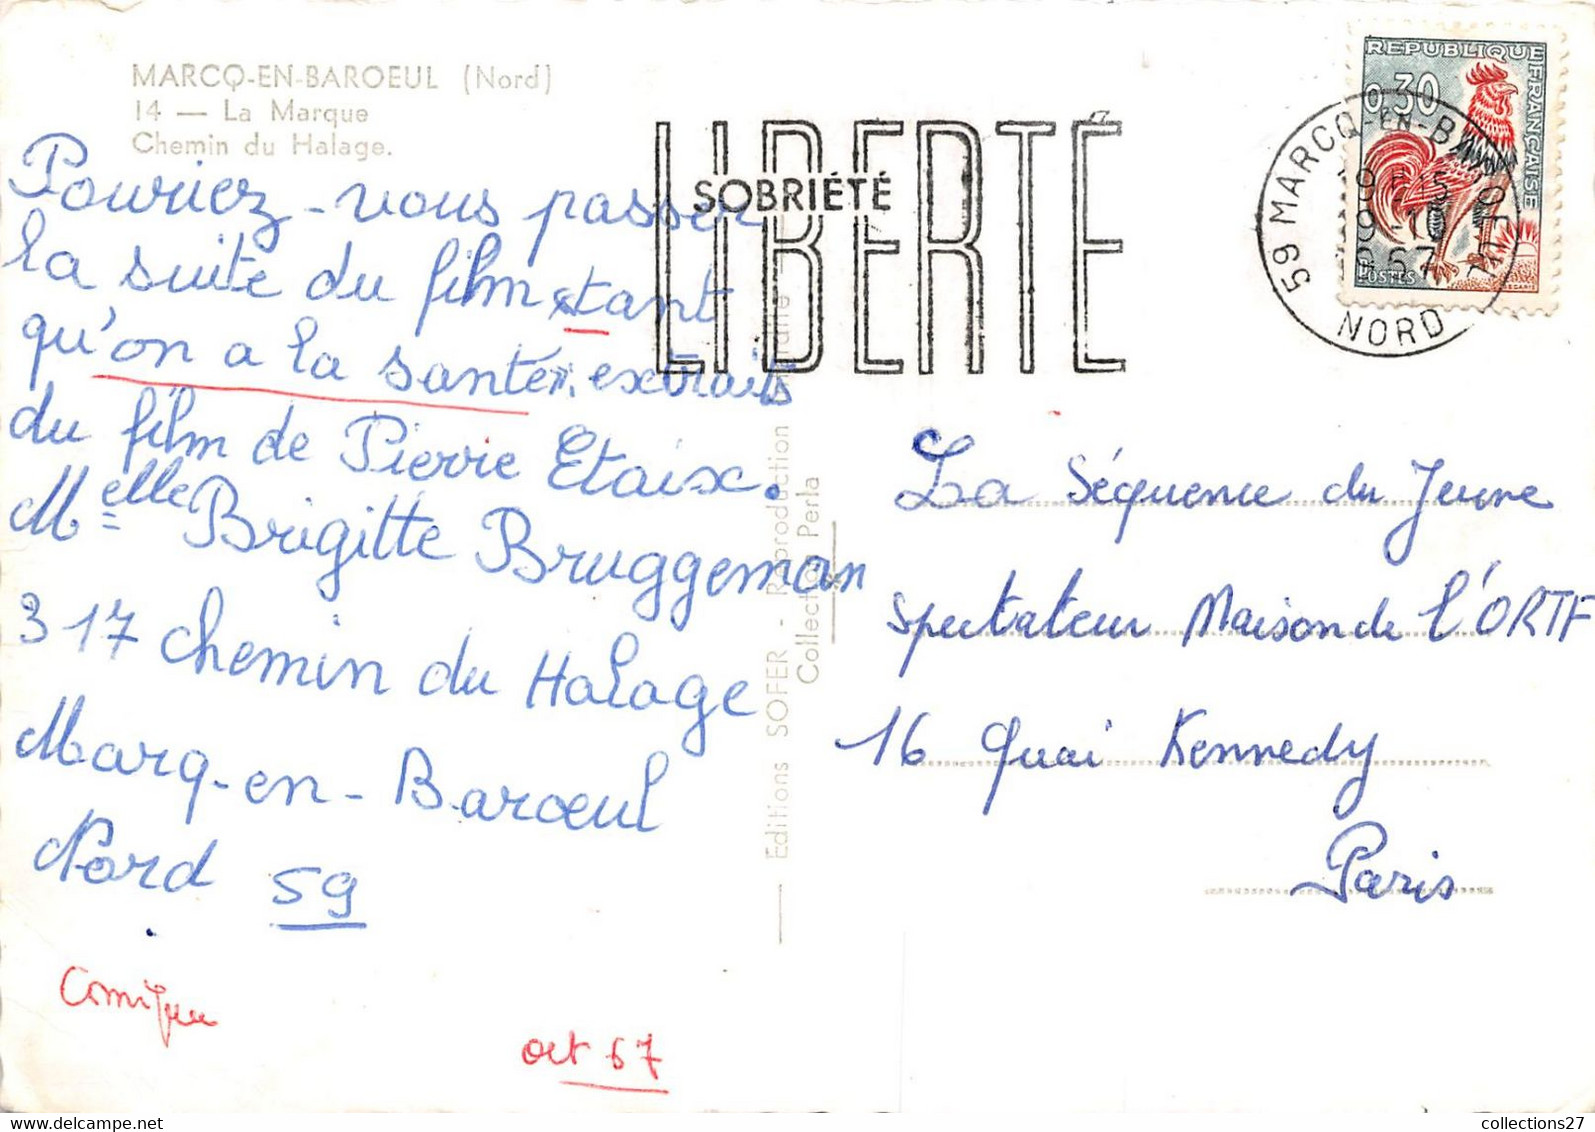 MARCQ-EN-BAROEUL (Nord)
14 — La Marque
Chemin du Halage.
Pouriez-vous passer
la suite du film "tant
qu'on a la santé", extraits
du film de Pierre Etaix.
Melle Brigitte Bruggeman
317 chemin du Halage
Marq-en-Baroeul
Nord 59
Comique
oct 67
Editions SOFER - Reproduction
Collection Perla
LIBERTÉ
SOBRIÉTÉ
REPUBLIQUE FRANÇAISE
0,30
POSTES
59 MARCQ-EN-BAROEUL
9-10
67
NORD
La Séquence du Jeune
Spectateur Maison de l'ORTF
16 Quai Kennedy
Paris
collections27